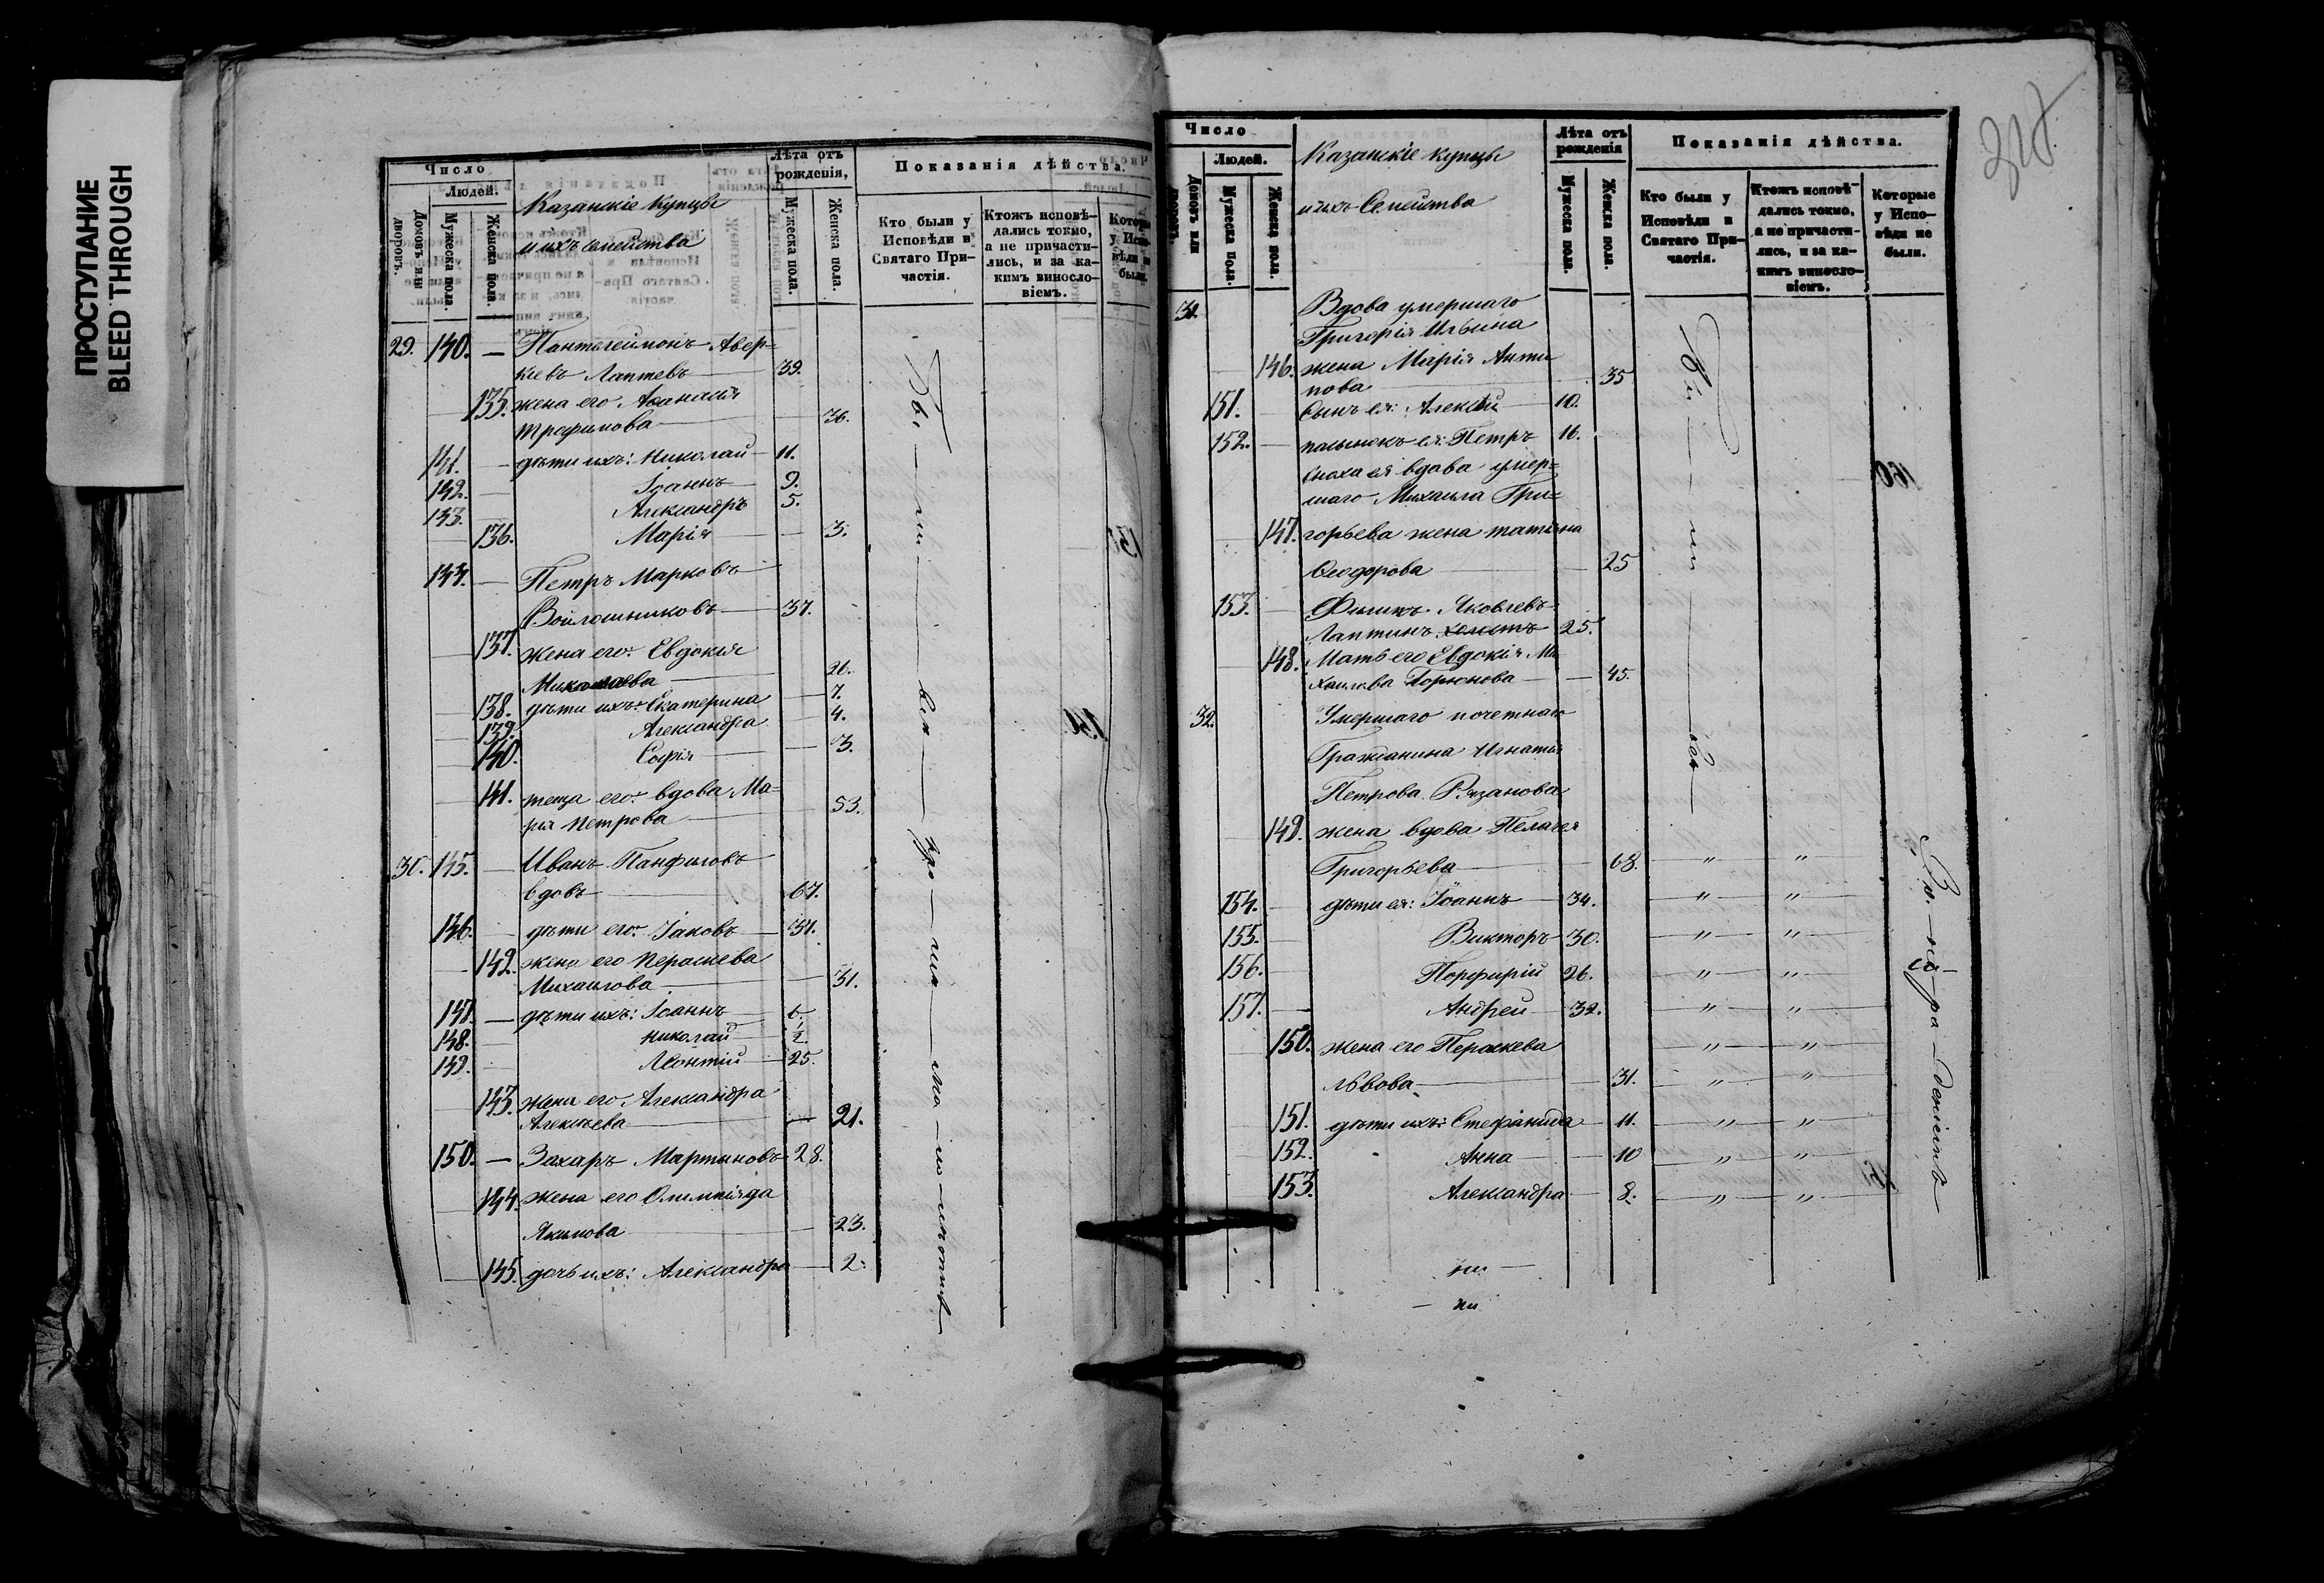 ПРОСТУПАНИЕ
BLEED THROUGH
Число
Людей.
Домовъ или дворовъ.
Мужеска пола.
Женска пола.
Казанскіе купцы
и ихъ семейства
Лѣта отъ рожденія,
Мужеска пола.
Женска пола.
Показанія дѣйства.
Кто были у Исповѣди и Святаго Причастія.
Ктожъ исповѣ-
дались токмо,
а не причасти-
лись, и за ка-
кимъ винословіемъ.
29. 140. — Пантелеимонъ Авер=
кіевъ Лаптевъ — 39.
135. жена его Аѳанасія
Трефилова — 36.
141. — дѣти ихъ: Николай — 11.
142. — Іоаннъ — 9.
143. — Александръ 5.
136. Марія — 3.
144. — Петръ Марковъ
Войлошниковъ — 37.
137. жена его: Евдокія
Николаева — 26.
138. дѣти ихъ: Екатерина — 7.
139. Александра — 4.
140. Софія — 3.
141. теща его: вдова Ма=
рія Петрова — 53.
30. 145. — Иванъ Панфиловъ
вдовъ — 67.
146. — дѣти его: Іаковъ — 37.
142. жена его Пераскева
Михаилова — 31.
147. — дѣти ихъ: Іоаннъ — 6.
148. — Николай — 1/2
149. — Леонтій — 25.
143. жена его Александра
Алексѣева — 21.
150. — Захаръ Мартыновъ 28.
144. жена его Олимпіяда
Якимова — 23.
145. дочь ихъ: Александра — 2.
Бы — ли — всѣ
317
Число
Людей.
Домовъ или дворовъ.
Мужеска пола.
Женска пола.
Казанскіе купцы
и ихъ Семейства
Лѣта отъ рожденія
Мужеска пола.
Женска пола.
Показанія дѣйства.
Кто были у
Исповѣди и
Святаго При-
частія.
Ктожъ исповѣ-
дались токмо,
а не причасти-
лись, и за ка-
кимъ винословіемъ.
Которые
у Испо-
вѣди не
были.
31. Вдова умершаго
Григорія Ильина
146. жена Марія Анти
пова — 35
151. Сынъ ея: Алексѣй — 10.
152. — пасынокъ ея: Петръ 16.
сноха ея вдова умер=
шаго Михаила Гри=
147. горьева жена Татіана
Ѳеодорова — 25
153. Филипъ Яковлевъ
Лаптинъ холостъ 25.
148. Мать его Евдокія Ми
хаилова Горюнова — 45.
32. Умершаго почетнаго
Гражданина Игнатія
Петрова Рязанова
149. жена вдова Пелагея
Григорьева — 68. — " — "
154. — дѣти ея: Іоаннъ — 34. — " — "
155. — Викторъ — 30. — " — "
156. — Порфирій 26. — " — "
157. — Андрей — 32. — " — "
150. жена его Пераскева — " — "
Львова — 31. — " — "
151. дѣти ихъ: Стефанида — 11. — " — "
152. Анна — 10 — " — "
153. Александра — 8. — " — "
Бы — ли — всѣ